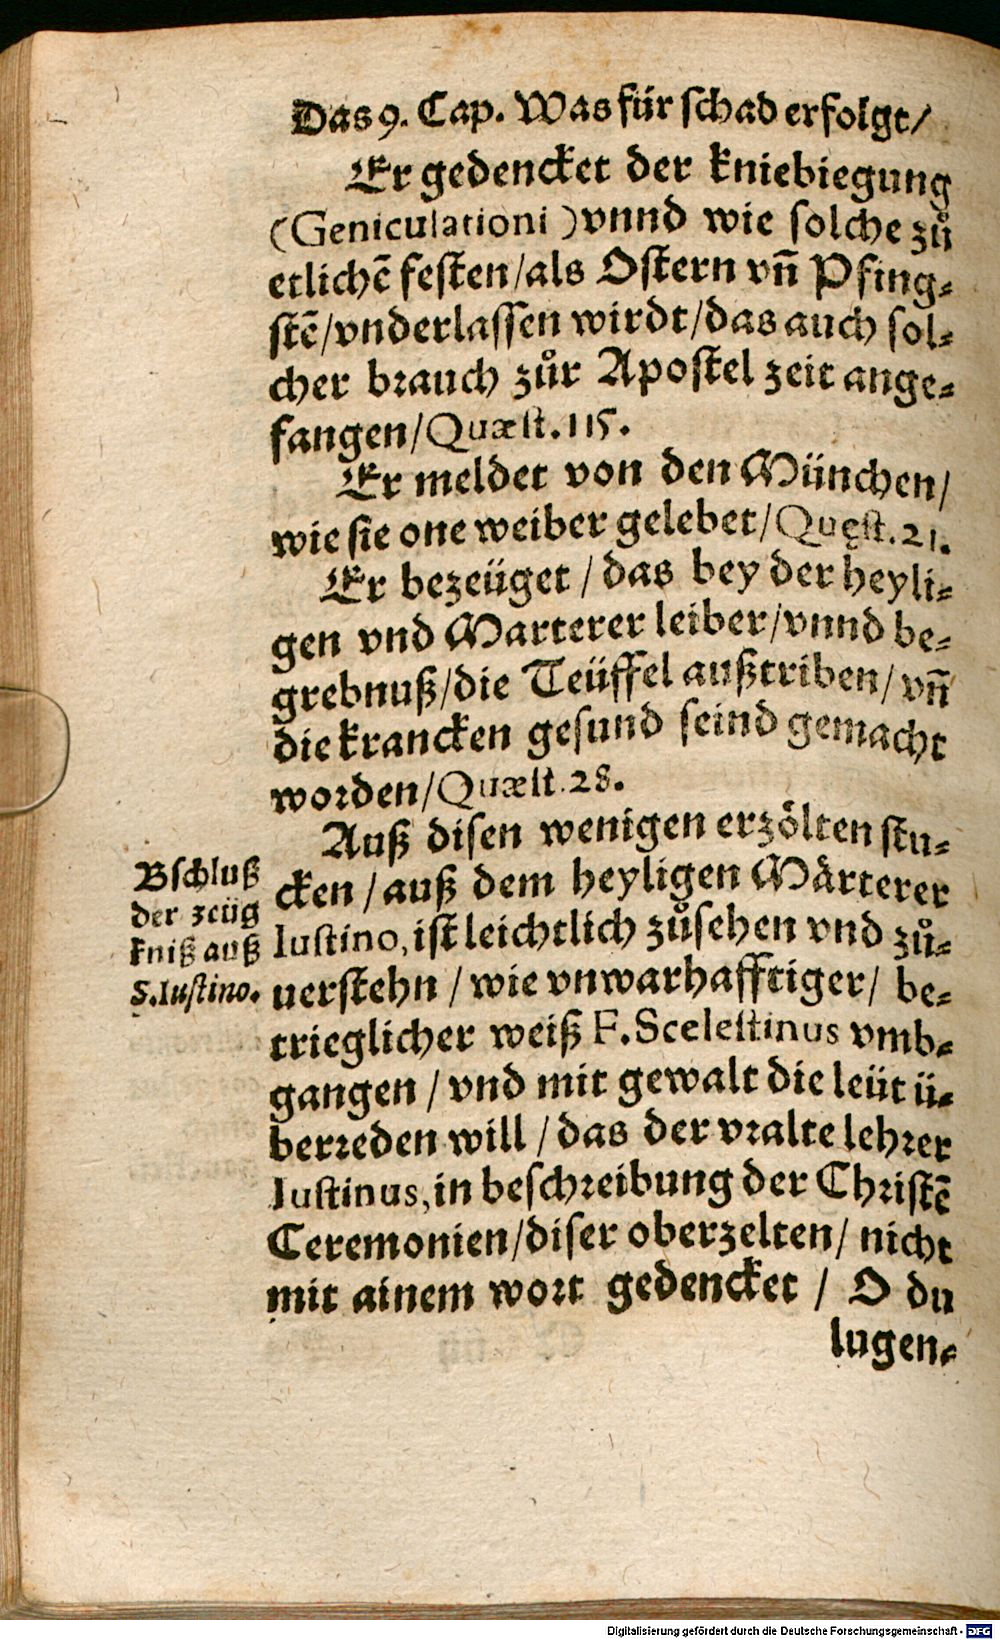 Das 9. Cap. Was für schad erfolgt/
Er gedencket der kniebiegung
(Geniculationi) vnnd wie solche zů
etlichẽ festen/als Ostern vñ Pfing⸗
stẽ/vnderlassen wirdt/das auch sol⸗
cher brauch zůr Apostel zeit ange⸗
fangen/Quæst. 115.
Er meldet von den München/
wie sie one weiber gelebet/Quęst. 21.
Er bezeüget/das bey der heyli⸗
gen vnd Marterer leiber/vnnd be⸗
grebnuß/die Teüffel außtriben/vñ
die krancken gesund seind gemacht
worden/Quæst. 28.
Auß disen wenigen erzölten stu⸗
cken/auß dem heyligen Märterer
Iustino, ist leichtlich zůsehen vnd zů⸗
uerstehn/wie vnwarhafftiger/be⸗
trieglicher weiß F. Scelestinus vmb⸗
gangen/vnd mit gewalt die leüt ü⸗
berreden will/das der vralte lehrer
Iustinus, in beschreibung der Christẽ
Ceremonien/diser oberzelten/nicht
mit ainem wort gedencket/O du
lugen⸗
Bschluß
der zeüg
kniß auß
S. Iustino.
Digitalisierung gefördert durch die Deutsche Forschungsgemeinschaft - DFG